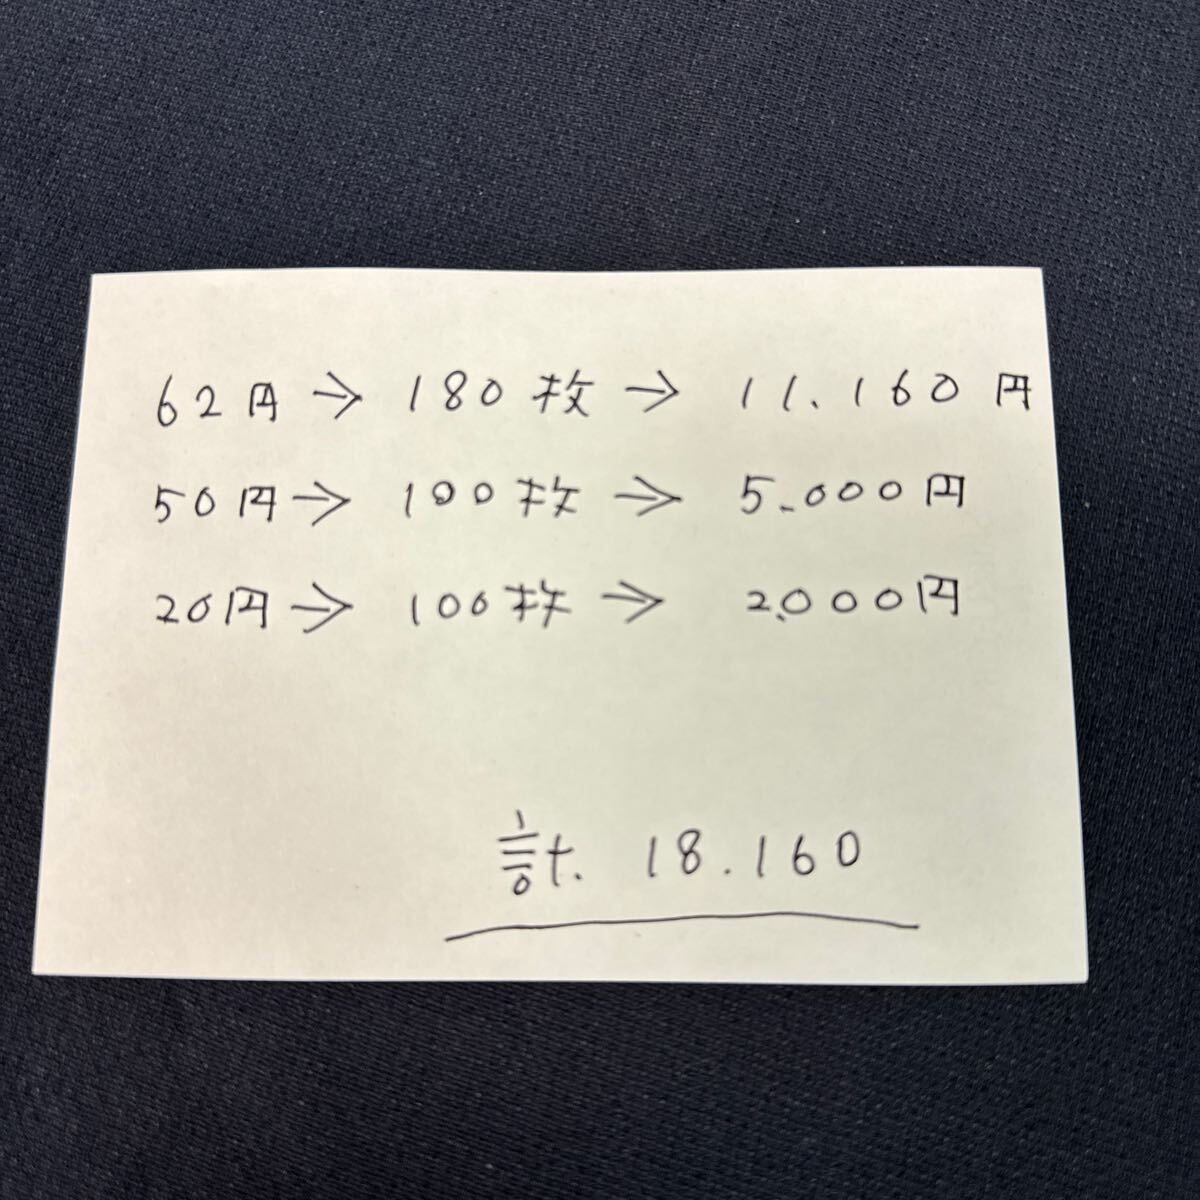 62円→180枚→11.160円
50円→100枚→5.000円
20円→100枚→2.000円
計.18.160